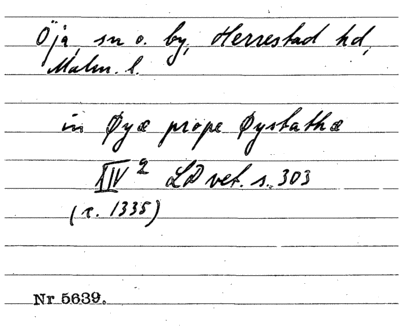 Öja, sn o. by, Herrestad hd,
Malm. l.
in Øyæ prope Øystathæ
XIV 2 LD vet. s. 303
(c. 1335)
Nr 5639.